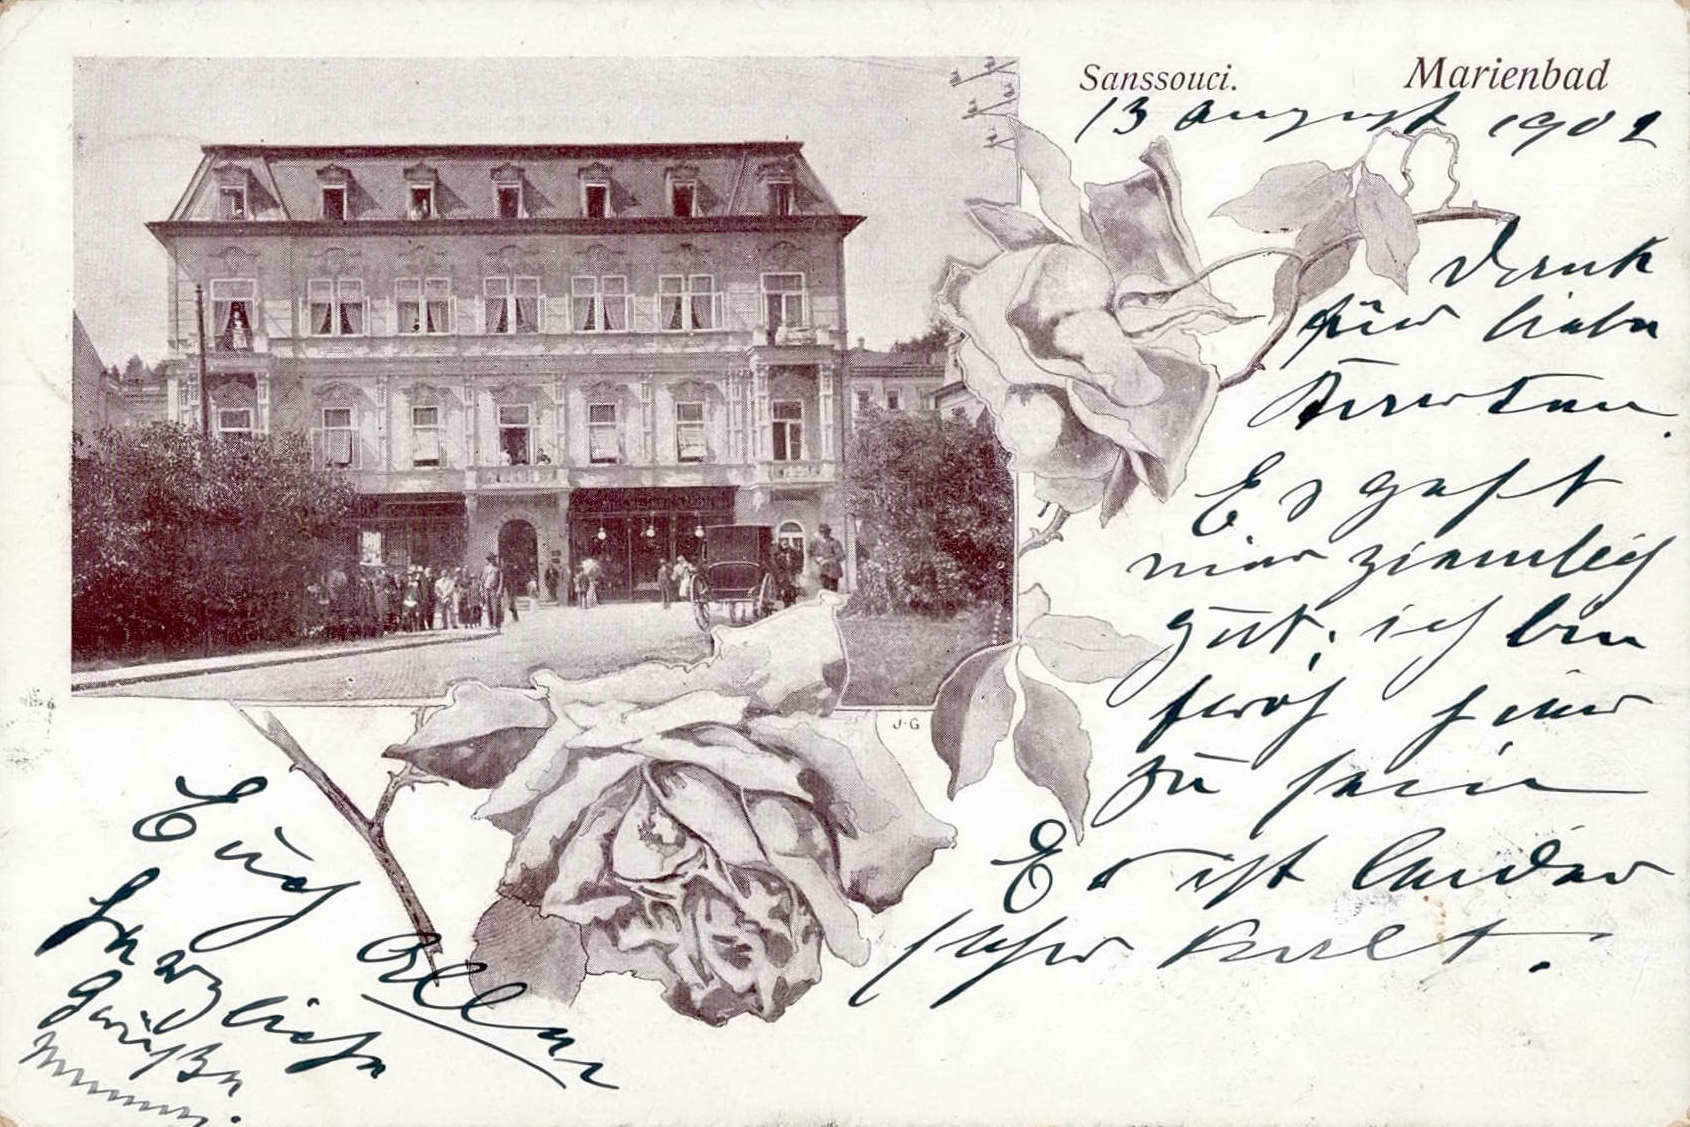 Sanssouci. Marienbad
13 August 1902
Dank
für liebe
Karten.
Es geht
mir ziemlich
gut, ich bin
froh hier
zu sein
Es ist leider
sehr kalt.
Euch
Allen
herzliche
Grüße
J·G